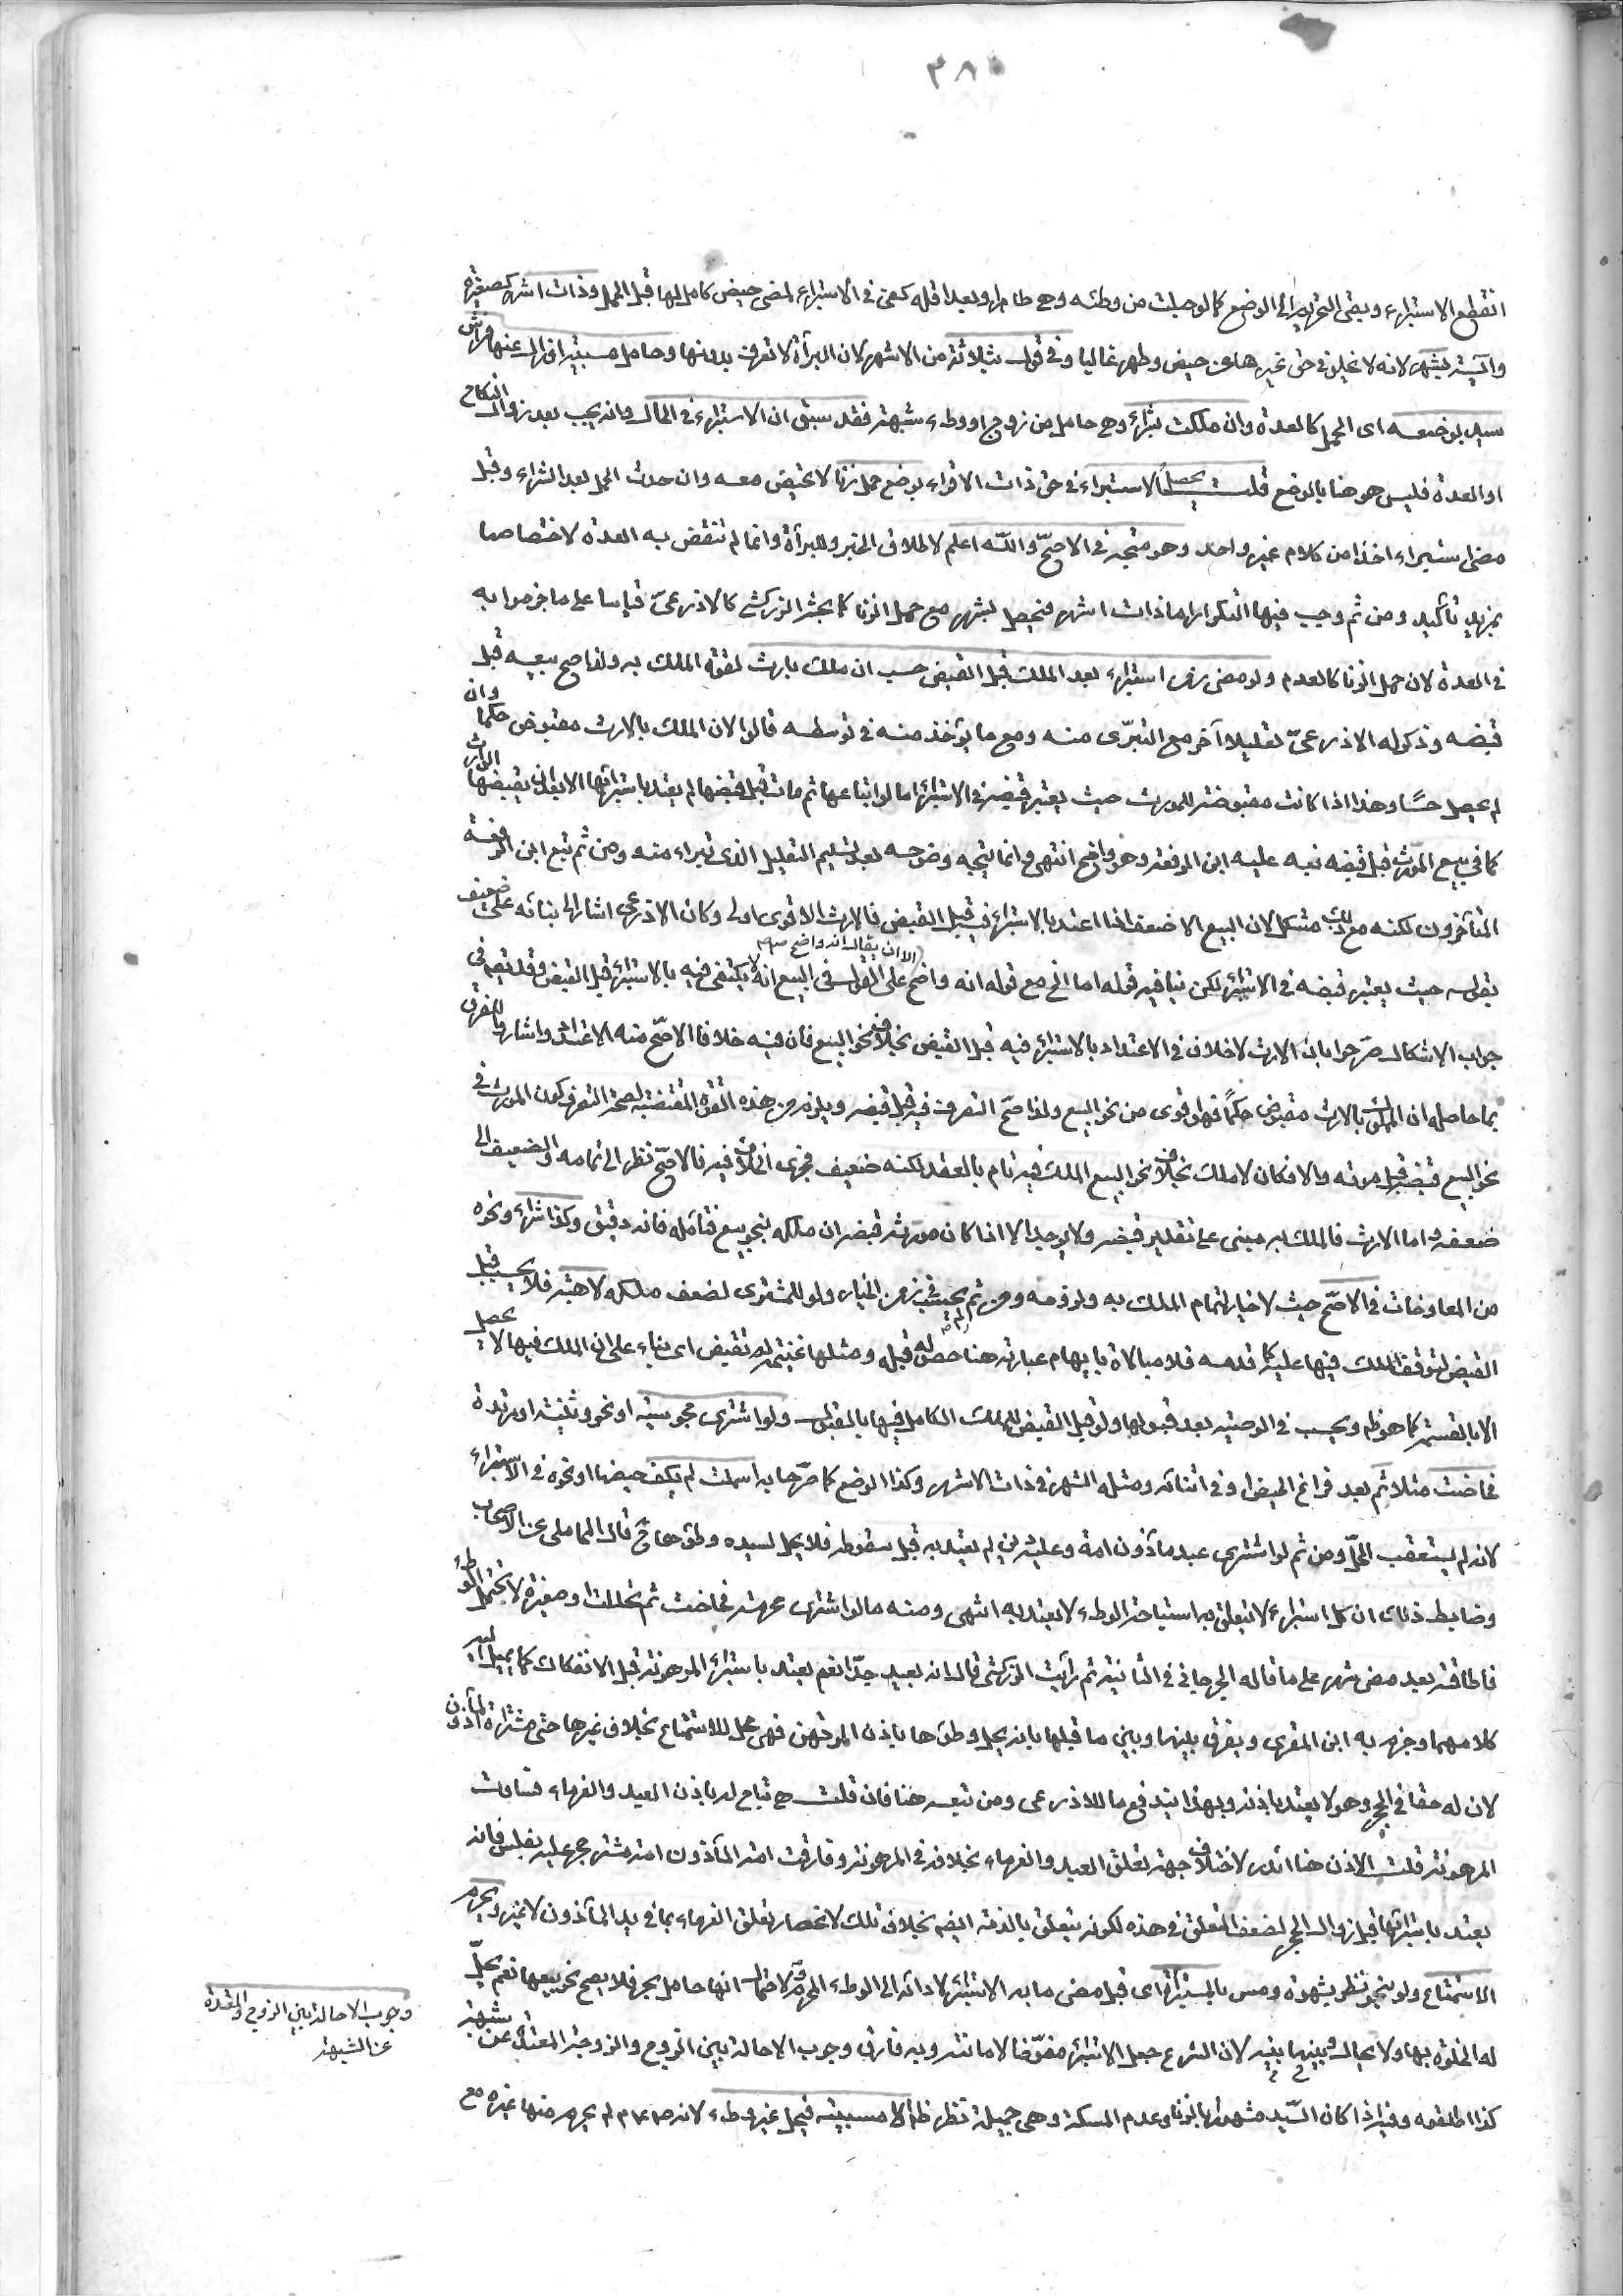 ٣٨٠
انقطع الاستبراء وبقي التحريم الى الوضع كما لو حبلت من وطئه وهي طاهر او بعد اقله كفى في الاستبراء لمضي حيض كامل لها قبل الحمل وذات اشهر كصغيرة
وآيسة بشهر لانه لا يخلو في حق غيرها عن حيض وطهر غالبا وفي قول بثلاثة من الاشهر لان البراءة لا تعرف بدونها وحامل مسبية او زال عنها فراش
سيد بوضعه اى الحمل كالعدة وان ملكت بشراء وهي حامل من زوج او وطء شبهة فقد سبق ان الاستبراء في الحال وانه يجب بعد زوال النكاح
او العدة فليس هو هنا بالوضع قلت يحصل الاستبراء في حق ذات الاقراء بوضع حمل زنا لا تحيض معه وان حدث الحمل بعد الشراء وقبل
مضي استبراء اخذا من كلام غير واحد وهو متجه في الاصحّ والله اعلم لاطلاق الخبر وللبرأة وانما لم تنقض به العدة لاختصاصها
بمزيد تأكيد ومن ثم وجب فيها التكرار اما ذات اشهر فيحصل بشهر مع حمل الزنا كما بحثه الزركشي كالاذرعيّ قياسا على ما جزموا به
في العدة لان حمل الزنا كالعدم ولو مضى زمن استبراء بعد الملك قبل القبض حسب ان ملك بارث لقوة الملك به ولذا صح بيعه قبل
قبضه وذكر له الاذرعيّ تعليلا آخر مع التبرّى منه ومع ما يؤخذ منه في توسطه قالوا لان الملك بالارث مقبوض حكما وان
لم يحصل حسًّا وهذا اذا كانت مقبوضة للمورث حيث يعتبر قبضه في الاستبراء اما لو ابتاعها ثم مات قبل قبضها لم يعتد باستبرائها الا بعد ان يقبضها الوارث
كما في بيع المورّث قبل قبضه نبه عليه ابن الرفعة وهو واضح انتهى وانما يتجه وضوحه بعد تسليم التعليل الذى تبراء منه ومن ثم تبع ابن الرفعة
المتأخرون لكنه مع ذلك مشكل لان البيع الاضعف اذا اعتد بالاستبراء فيه قبل القبض فالارث الاقوى اولى وكان الاذرعي اشار الى بنائه على ضعيف
بقوله حيث يعتبر قبضه في الاستبراء لكن ينافيه قوله اما الخ مع قوله انه واضح الا ان يقال انه واضح على القول في البيع انه لا يكتفى فيه بالاستبراء قبل القبض وقد يقع في
جواب الاشكال صرّحوا بان الارث لا خلاف في الاعتداد بالاستبراء فيه قبل القبض بخلاف نحو البيع فان فيه خلافا الاصحّ منه الاعتداد واشاروا للفرق
بما حاصله ان الملك بالارث مقبوض حكمًا فهو اقوى من نحو البيع ولذا صحّ التصرف فيه قبل قبضه ويلزم من هذه القوة المقتضية لصحة التصرف كون المورث في
نحو البيع قبضه قبل موته والا فكان لا ملك بخلاف نحو البيع الملك فيه تام بالعقد لكنه ضعيف فجرى الخلاف فيه فالاصحّ نظر الى تمامه والضعيف الى
ضعفه واما الارث فالملك به مبنى على تقدير قبضه ولا يوجد الا اذا كان مورثه قبضه ان ملكه بنحو بيع فتأمله فانه دقيق وكذا شراء ونحوه
من المعاوضات في الاصحّ حيث لا خيار لتمام الملك به ولزومه ومن ثم لم يحسب في زمن الخيار ولو للمشترى لضعف ملكه لا هبة فلا يحسب قبل
القبض لتوقف الملك فيها عليه كما قدمه فلا مبالاة بايهام عبارته هنا حصوله قبله ومثلها غنيمة لم تقبض اى بناء على ان الملك فيها لا يحصل
الا بالقسمة كما هو ظاهر ويحسب في الوصية بعد قبولها ولو قبل القبض للملك الكامل فيها بالقبول ولو اشترى مجوسية او نحو وثنية او مرتدة
فحاضت مثلا ثم بعد فراغ الحيض او في اثنائه ومثله الشهر في ذات الاشهر وكذا الوضع كما صرّحا به اسلمت لم يكف حيضها او نحوه في الاستبراء
لانه لم يستعقب الحلّ ومن ثم لو اشترى عبد مأذون امة وعليه دين لم يعتد به قبل سقوطه فلا يحل لسيده وطؤها ح قال المحاملي عن الاصحاب
وضابط ذلك ان كل استبراء لا تتعلق به استباحة الوطء لا يعتد به انتهى ومنه ما لو اشترى محرمة فحاضت ثم تحللت او صغيرة لا تحتمل الوطء
فاطاقته بعد مضي شهر على ما قاله الجرجاني في الثانية ثم رأيت الزركشي قال انه بعيد جدّا نعم يعتد باستبراء المرهونة قبل الانفكاك كما يميل اليه
كلامهما وجزم به ابن المقرى ويفرق بينها وبين ما قبلها بانه يحل وطؤها باذن المرتهن فهي محل للاستمتاع بخلاف غيرها حتى مشتراة المأذون
لان له حقا في الحجر وهو لا يعتد باذنه وبهذا يندفع ما للاذرعي ومن تبعه هنا فان قلت هي تباح له باذن العبد والغرماء فساوت
المرهونة قلت الاذن هنا اندر لاختلاف جهة تعلق العبد والغرماء بخلافه في المرهونة وفارقت امة المأذون امة مشتر حجر عليه بفلس فانه
يعتد باستبرائها قبل زوال الحجر لضعف التعلق في هذه لكونه يتعلق بالذمة ايضا بخلاف تلك لانحصار تعلق الغرماء بما في يد المأذون لا غير ويحرم
الاستمتاع ولو بنحو نظر بشهوة ومس بالمستبرأة اى قبل مضي ما به الاستبراء لادائه الى الوطء المحرم ولاحتمال انها حامل بحر فلا يصح نحو بيعها نعم يحلّ
له الخلوة بها ولا يحال بينه وبينها لان الشرع جعل الاستبراء مفوّضا لامانته وبه فارق وجوب الاحالة بين الزوج والزوجة المعتدة عن شبهة
كذا اطلقوه وفيه اذا كان السيّد مشهورا بالزنا وعدم المسكة وهي جميلة نظر ظاهر الا مسبية فيحل غير وطء لانه صلم لم يحرم منها غيره مع
وجوب الاحالة بين الزوج والمعتدة
عن الشبهة